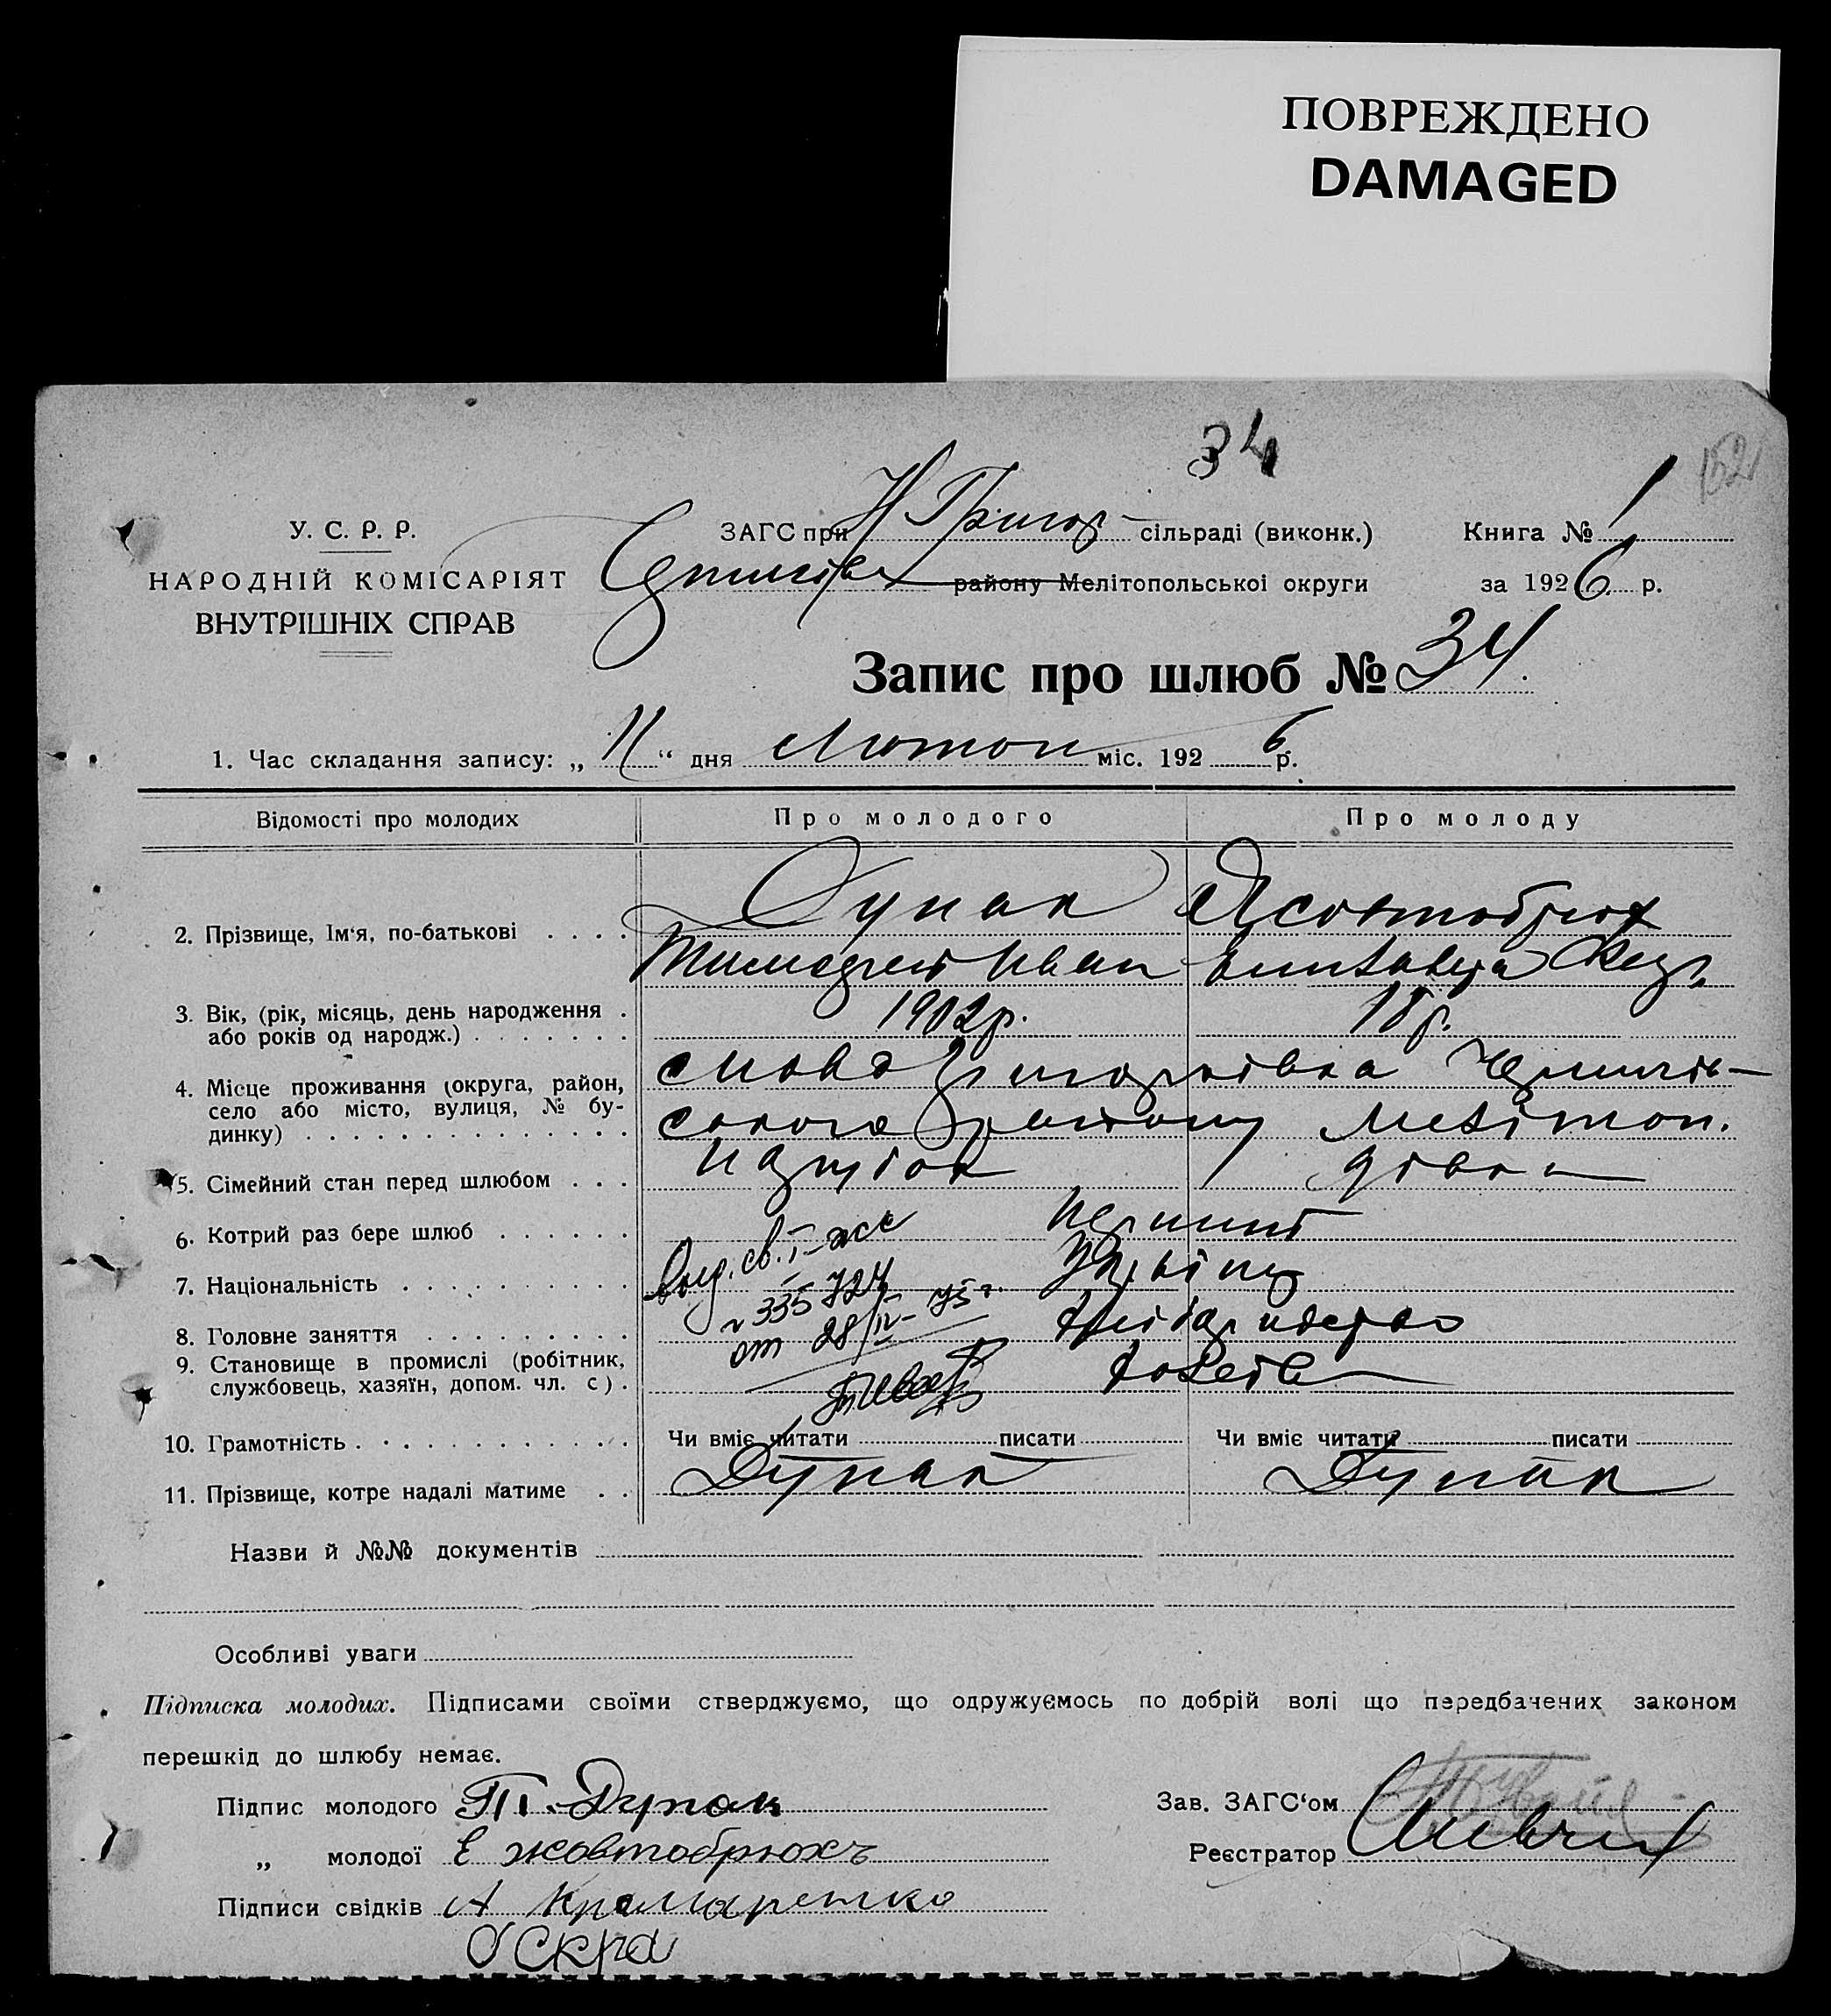 ПОВРЕЖДЕНО
DAMAGED
34
152
У. С. Р. Р.
НАРОДНІЙ КОМІСАРІЯТ
ВНУТРІШНІХ СПРАВ
ЗАГС при Н Григор сільраді (виконк.)
району Мелітопольської округи
Книга № 1
за 1926 р.
Запис про шлюб № 34
1. Час складання запису: „ 11 “ дня Лютого міс. 192 6 р.
Відомості про молодих Про молодого Про молоду
2. Прізвище, Ім'я, по-батькові . . . . Дупак Жовтобрюх
Тимофей Иван Елизавета
3. Вік, (рік, місяць, день народження . 1902р. 18 р.
або років од народж.) . . . . . . .
4. Місце проживання (округа, район, с Нова Григорівка
село або місто, вулиця, № бу-
динку) . . . . . . . . . . . . . . . ського району Мелітоп.
5. Сімейний стан перед шлюбом . . . парубок дівка
6. Котрий раз бере шлюб . . . . . . перший
7. Національність . . . . . . . . . . Выд. св. I-жс
№ 335724
8. Головне заняття . . . . . . . . . от 28/IV-75г.
9. Становище в промислі (робітник,
службовець, хазяїн, допом. чл. с) .
10. Грамотність . . . . . . . . . . . . Чи вміє читати писати Чи вміє читати писати
11. Прізвище, котре надалі матиме . . Дупак Дупак
Назви й №№ документів
Особливі уваги
Підписка молодих. Підписами своїми стверджуємо, що одружуємось по добрій волі що передбачених законом
перешкід до шлюбу немає.
Підпис молодого Т. Дупак
„ молодої Е жовтобрюхъ
Підписи свідків А Крамаренко
О Скра
Зав. ЗАГС'ом
Реєстратор